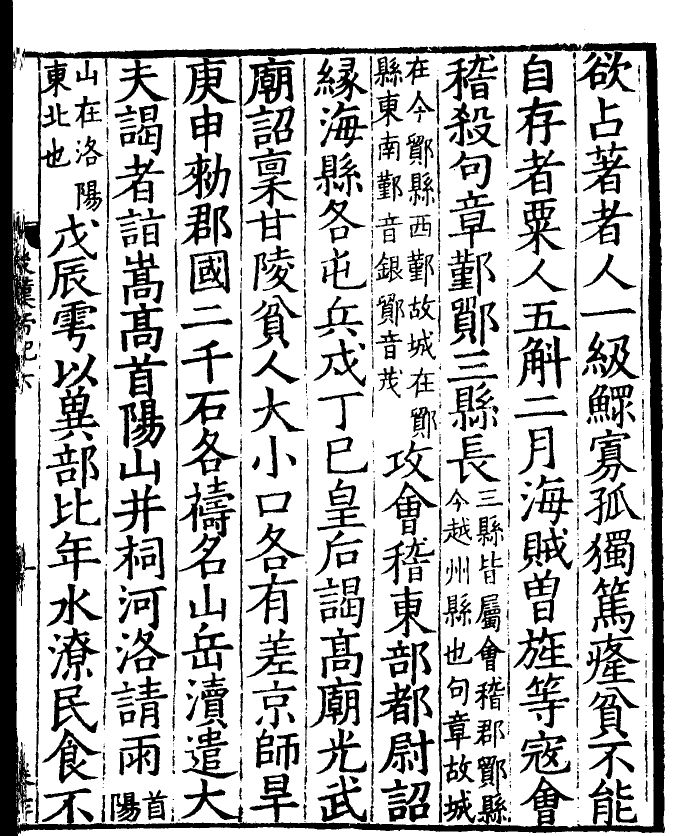 欲占著者人一級鰥寡孤獨篤癃貧不能
自存者粟人五斛二月海賊曽旌等寇會
稽殺句章鄞鄮三縣長三縣皆屬會稽郡鄮縣今越州縣也句章故城
在今鄮縣西鄞故城在鄮縣東南鄞音銀鄮音茂攻會稽東部都尉詔
緣海縣各屯兵戍丁巳皇后謁髙廟光武
廟詔稟甘陵貧人大小口各有差京師旱
庚申勑郡國二千石各禱名山岳瀆遣大
夫謁者詣嵩髙首陽山并祠河洛請雨首陽
山在洛陽東北也戊辰雩以兾部比年水潦民食不